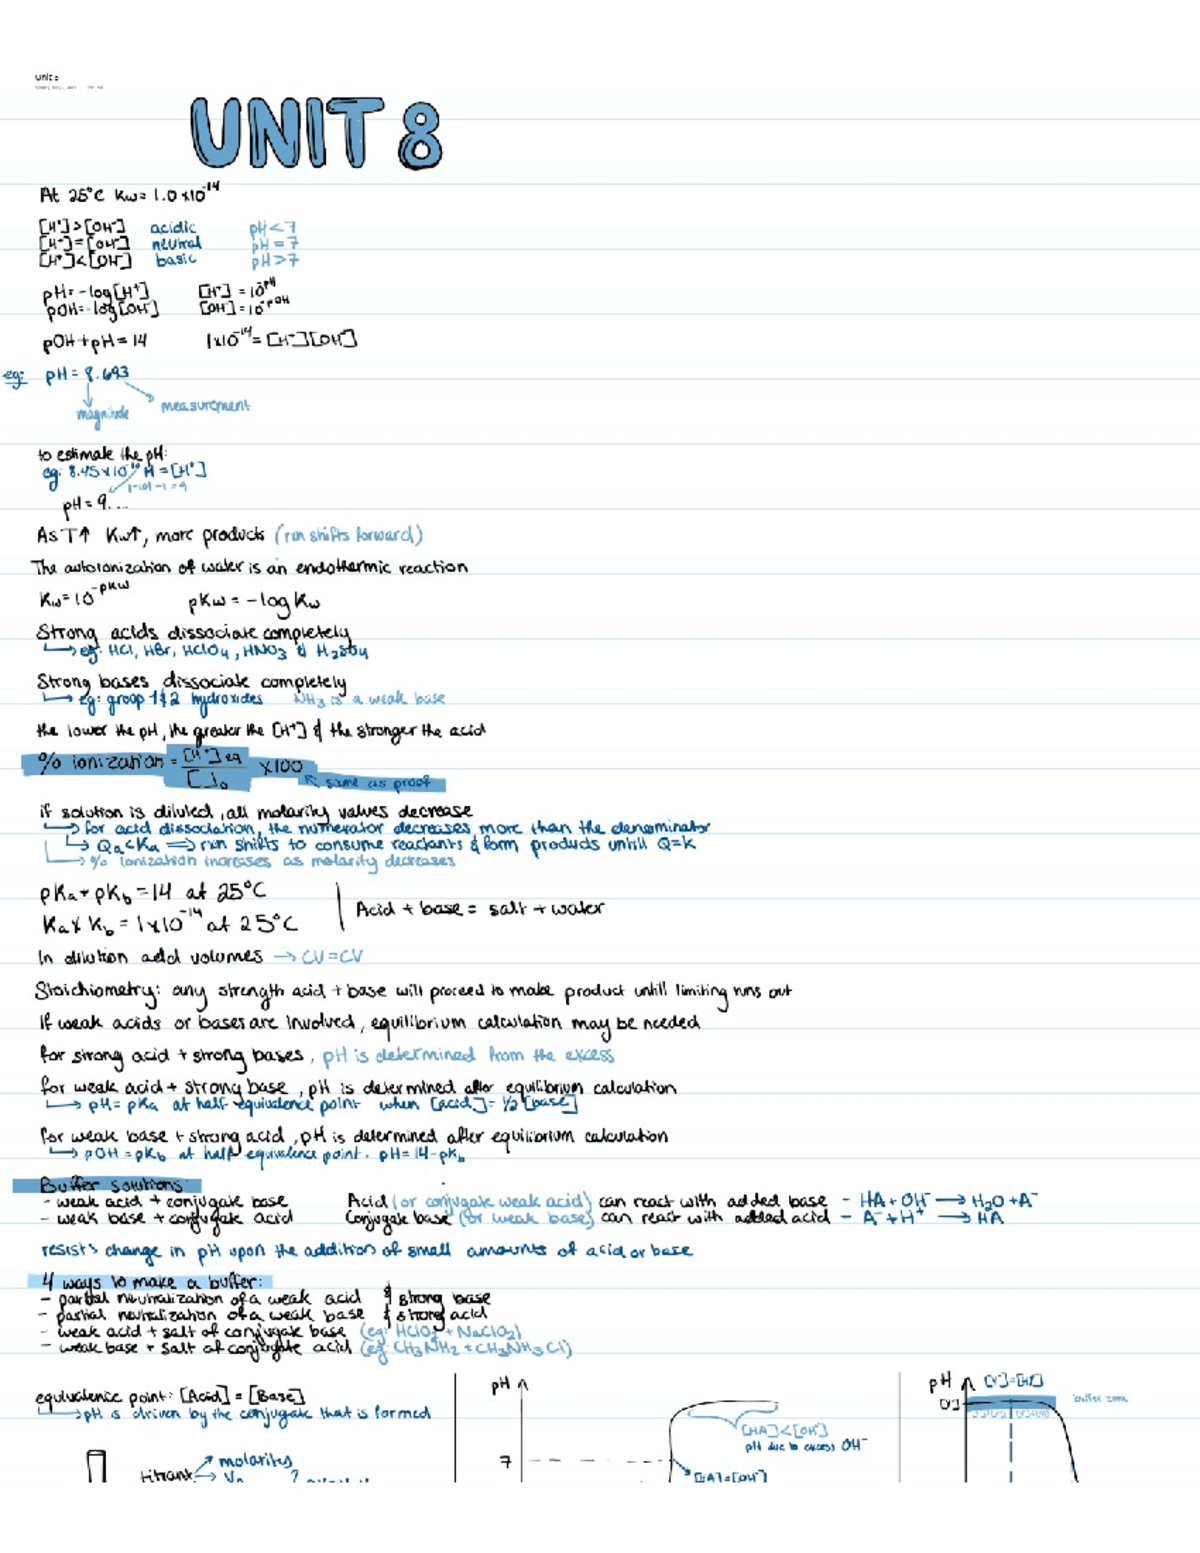 Unit 8
UNIT 8
At 25°C Kw = 1.0 x10^-14
[H⁺]>[OH⁻] acidic pH<7
[H⁺]=[OH⁻] neutral pH=7
[H⁺]<[OH⁻] basic pH>7
pH=-log[H⁺] [H⁺] = 10^-pH
pOH=-log[OH⁻] [OH⁻]=10^-pOH
pOH+pH=14 1x10^-14=[H⁺][OH⁻]
eg: pH = 8.693
magnitude measurement
to estimate the pH:
eg: 8.45x10^-10 M=[H⁺]
pH = 9....
As T↑ Kw↑, more products (rxn shifts forward)
The autoionization of water is an endothermic reaction
Kw=10^-pKw pKw = -logKw
Strong acids dissociate completely
↳ eg: HCl, HBr, HClO₄, HNO₃ & H₂SO₄
Strong bases dissociate completely
↳ eg: group 1&2 hydroxides NH₃ is a weak base
the lower the pH, the greater the [H⁺] & the stronger the acid
% ionization = [H⁺]eq / [ ]₀ x100
↖ same as proof
if solution is diluted, all molarity values decrease
↳ for acid dissociation, the numerator decreases more than the denominator
↳ Qa<Ka ⇒ rxn shifts to consume reactants & form products untill Q=K
↳ % ionization increases as molarity decreases
pKa+pKb=14 at 25°C
Ka x Kb = 1x10^-14 at 25°C
Acid + base = salt + water
In dilution add volumes → CV=CV
Stoichiometry: any strength acid + base will proceed to make product untill limiting runs out
If weak acids or bases are involved, equilibrium calculation may be needed
for strong acid + strong bases, pH is determined from the excess
for weak acid + strong base, pH is determined after equilibrium calculation
↳ pH=pKa at half equivalence point when [acid]=½[base]
for weak base + strong acid, pH is determined after equilibrium calculation
↳ pOH=pKb at half equivalence point. pH=14-pKb
Buffer solutions:
- weak acid + conjugate base Acid (or conjugate weak acid) can react with added base - HA+OH⁻→H₂O+A⁻
- weak base + conjugate acid Conjugate base (or weak base) can react with added acid - A⁻+H⁺→HA
resists change in pH upon the addition of small amounts of acid or base
4 ways to make a buffer:
- partial neutralization of a weak acid & strong base
- partial neutralization of a weak base & strong acid
- weak acid + salt of conjugate base (eg: HClO₂ + NaClO₂)
- weak base + salt of conjugate acid (eg: CH₃NH₂ + CH₃NH₃Cl)
equivalence point: [Acid]=[Base]
↳ pH is driven by the conjugate that is formed
titrant → molarity
pH
7
[HA]<[OH⁻]
pH due to excess OH⁻
[HA]=[OH⁻]
pH
buffer zone